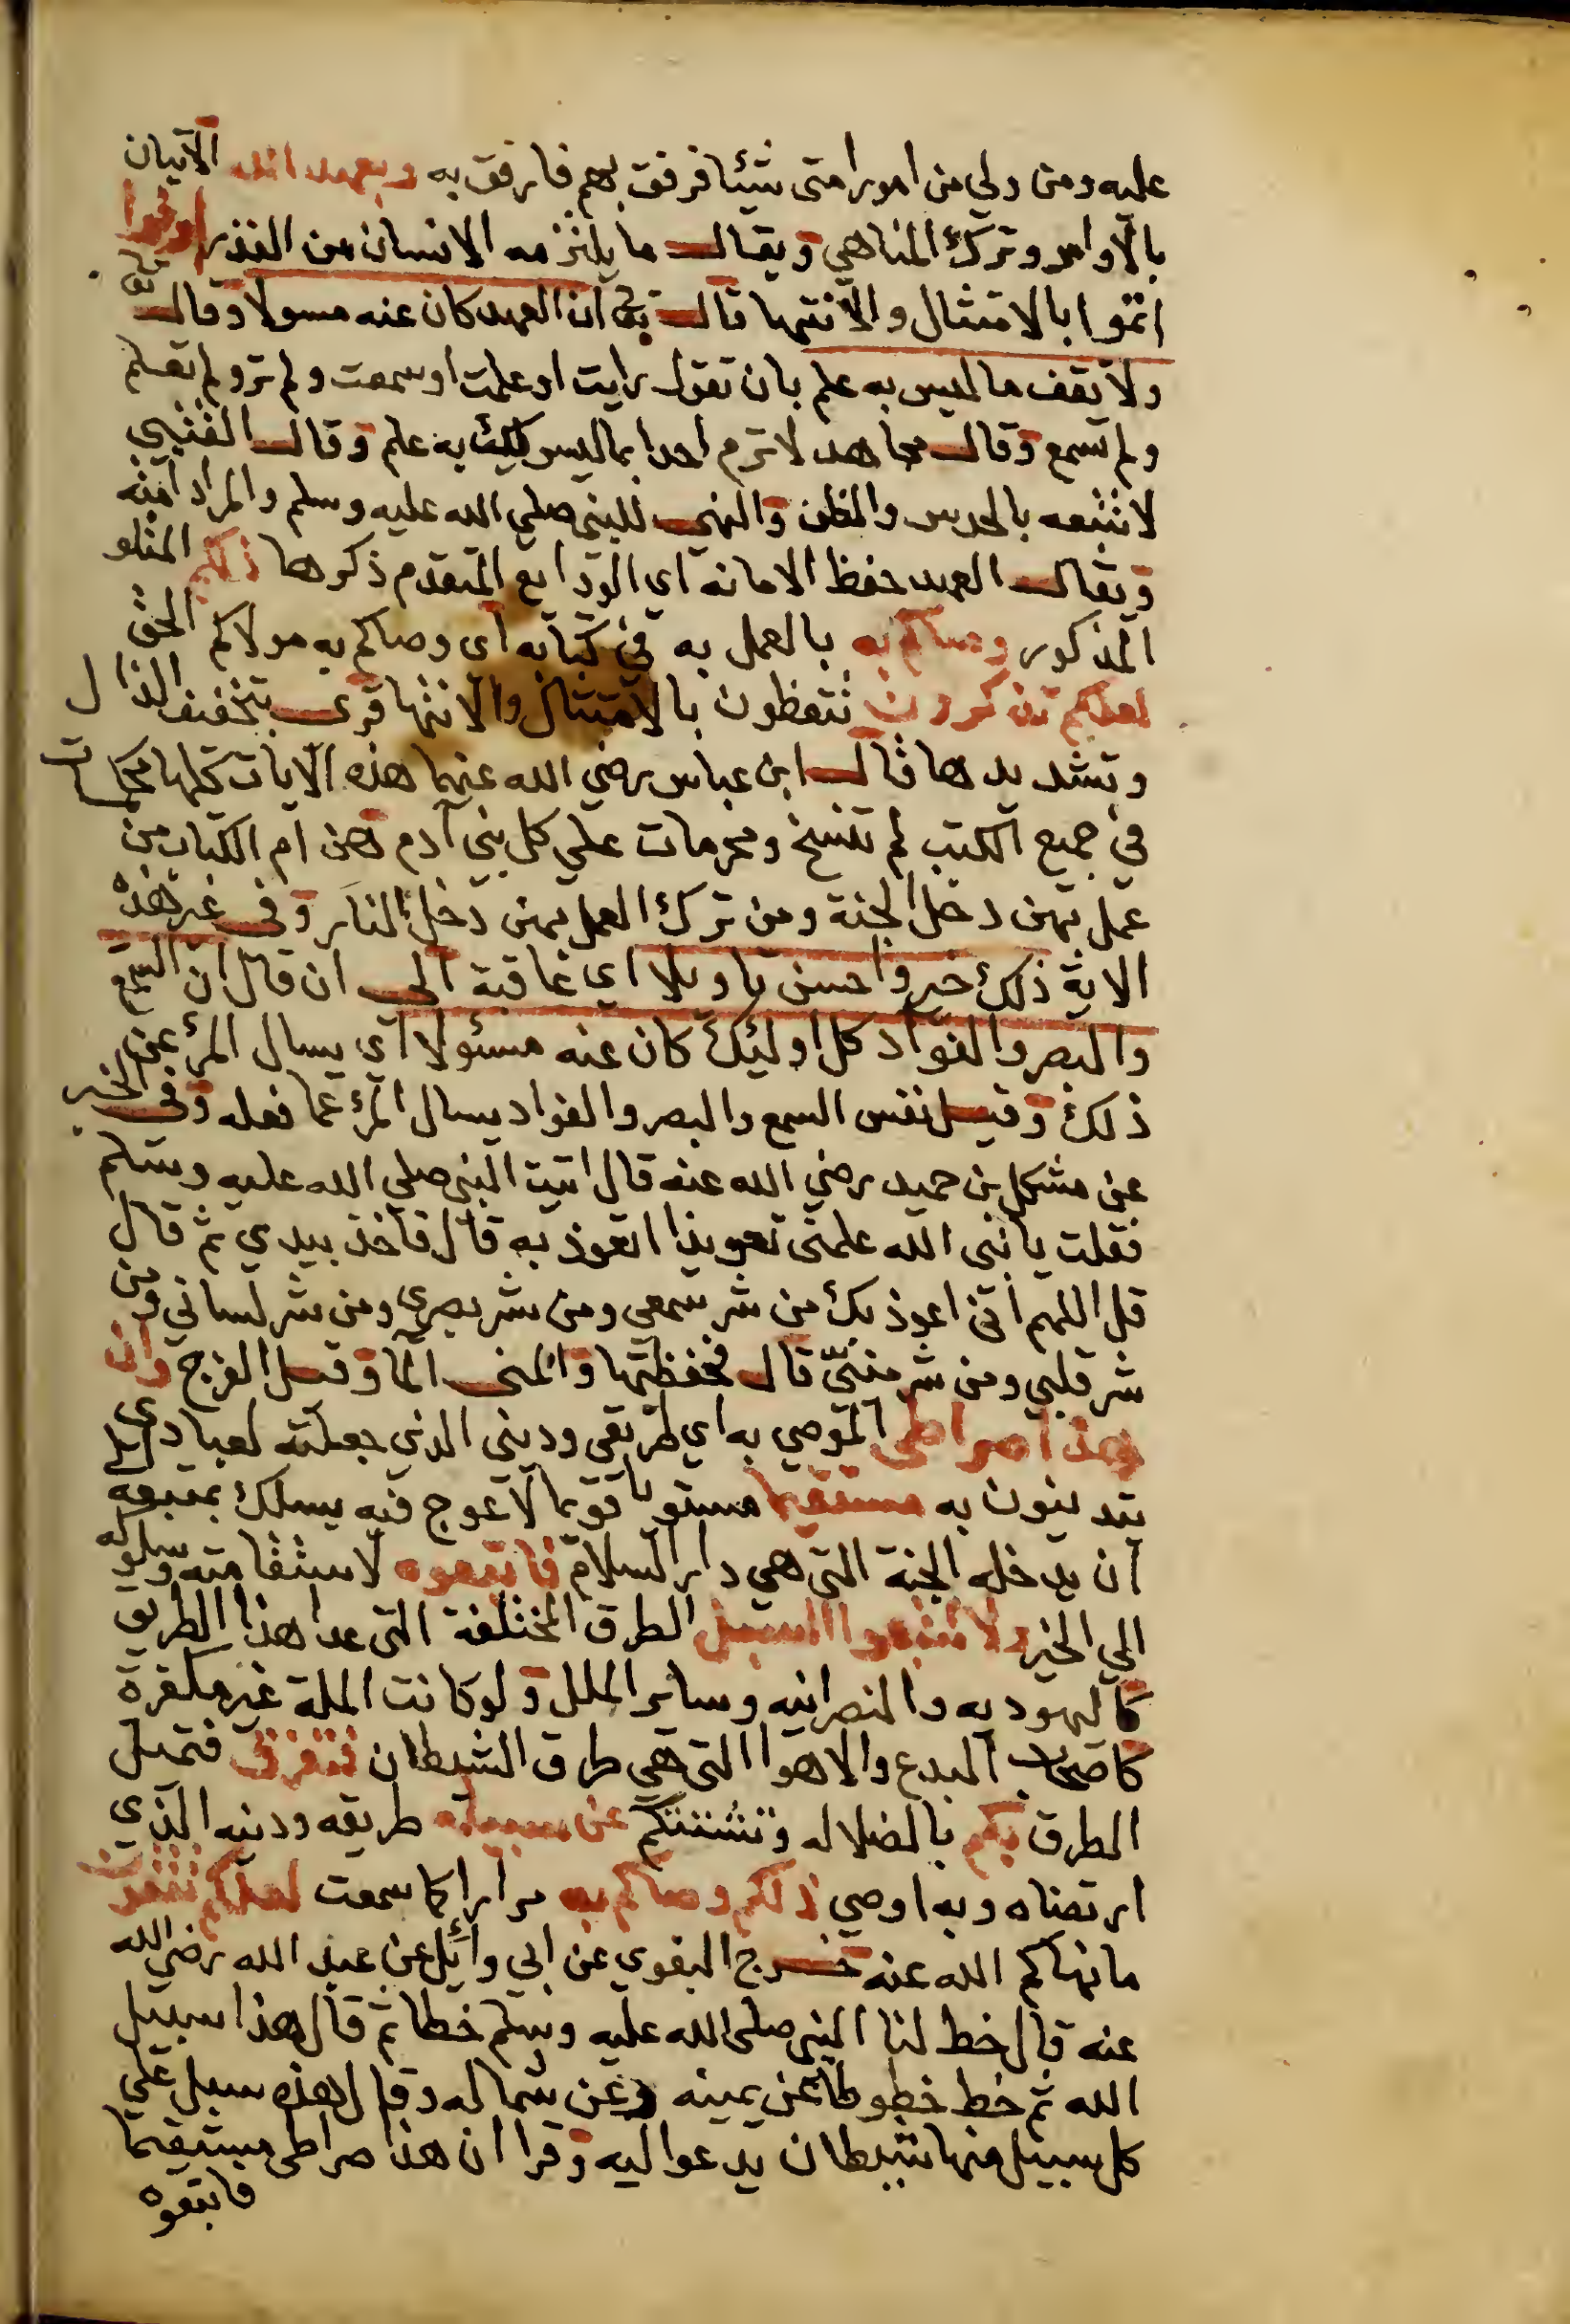 عليه ومن ولي من امور امتى شيئا فرفق بهم فارفق به وبعهد الله الاتيان
بالاوامر وترك المناهي ويقال ما يلتزمه الانسان من النذر اوفوا
اتموا بالامتثال والانتها قال تع ان العهد كان عنه مسولا وقال تع
ولا تقف ما ليس به علم بان تقول رايت او علمت او سمعت ولم تر ولم تعلم
ولم تسمع وقال مجاهد لا ترم احدا بما ليس لك به علم وقال القتيبي
لا تتبعه بالحدس والظن والنهي للنبي صلي الله عليه وسلم والمراد امته
ويقال العهد حفظ الامانه اي الودايع المتقدم ذكرها ذلكم المتلو
المذكور وصاكم به بالعمل به في كتابه اي وصاكم به مولاكم الحق
لعلكم تذكرون تتعظون بالامتثال والانتها قرى بتخفيف الذال
وتشديدها قال ابن عباس رضي الله عنهما هذه الايات كلها محكمات
في جميع الكتب لم تنسخ ومحرمات علي كل بني آدم هن ام الكتاب من
عمل بهن دخل الجنة ومن ترك العمل بهن دخل النار وفى غير هذه
الاية ذلك خير واحسن تاويلا اي عاقبة الي ان قال ان السمع
والبصر والفواد كل اوليك كان عنه مسئولا اي يسال المرء عن
ذلك وقيل نفس السمع والبصر والفواد يسال المرء عما فعله وفى الخبر
عن مشكل بن حميد رضي الله عنه قال اتيت النبي صلي الله عليه وسلم
فقلت يا نبى الله علمنى تعويذا اتعوذ به قال فاخذ بيدي ثم قال
قل اللهم انى اعوذ بك من شر سمعى ومن شر بصري ومن شر لساني ومن
شر قلبي ومن شر منيّي قال فحفظتها والمنى الما وقيل الفرج وان
هذا صراطى الموصي به اي طريقى وديني الذي جعلته لعبادي
يتدينون به مستقيما مستويا قويما لا عوج فيه يسلك بمتبعه
ان يدخله الجنة التى هي دار السلام فاتبعوه لاستقامته وسلوكه
الي الخير ولا تتبعوا السبل الطرق المختلفة التى عدا هذا الطريق
كاليهوديه والنصرانيه وساير الملل ولو كانت الملة غير مكفرة
كاصحاب البدع والاهوا التى هي طرق الشيطان فتفرق فتميل
الطرق بكم بالضلاله وتشتتكم عن سبيله طريقه ودينه الذي
ارتضاه وبه اوصي ذلكم وصاكم به مرارا كما سمعت لعلكم تتقون
ما نهاكم الله عنه خرج البغوي عن ابي وائل عن عبد الله رضي الله
عنه قال خط لنا النبي صلى الله عليه وسلم خطا ثم قال هذا سبيل
الله ثم خط خطوطا عن يمينه وعن شماله وقال هذه سبل علي
كل سبيل منها شيطان يدعوا اليه وقرا ان هذا صراطى مستقيما
فاتبعوه